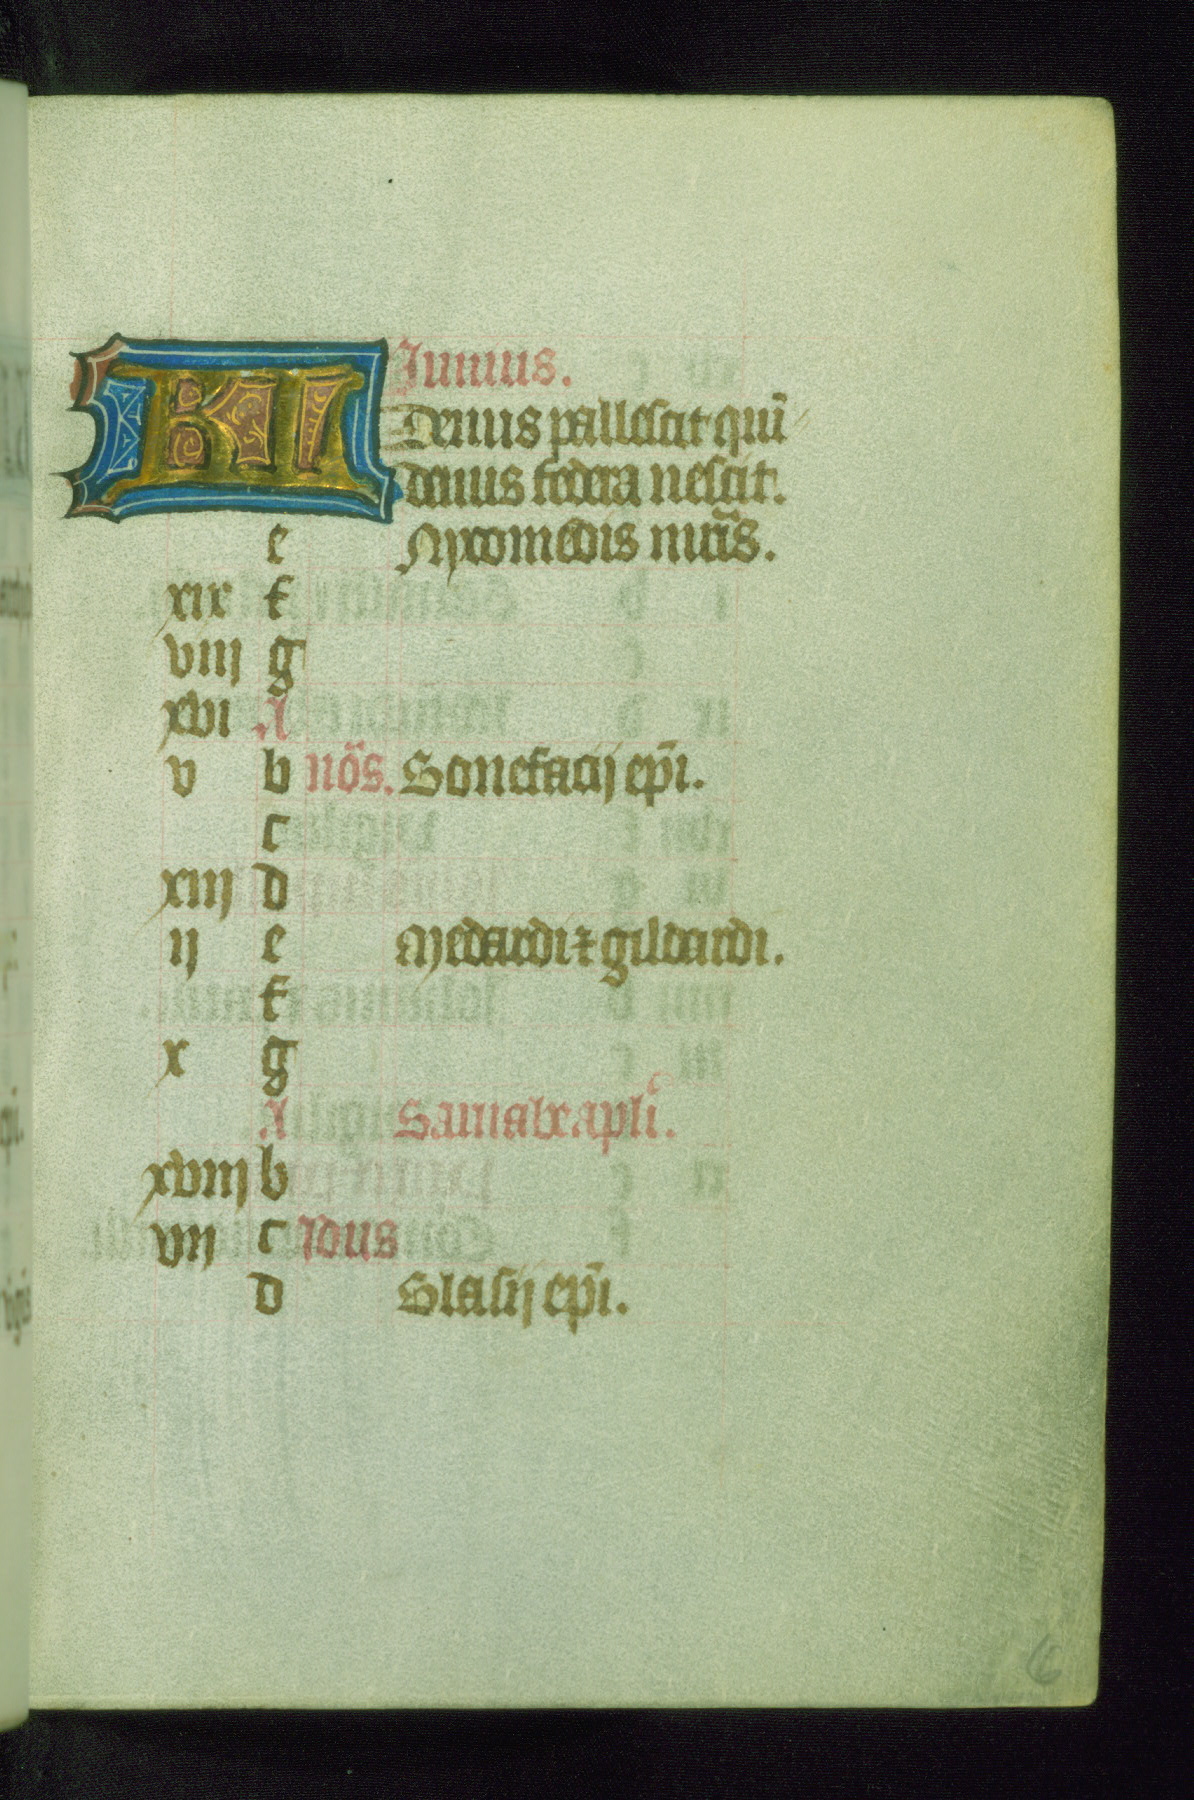 KL Iunius.
Denus pallescit quī
denus federa nescit.
e Nycomedis mr̄is.
xix f
viij g
xvi A
v b nōs. Bonefacij ep̄i.
c
xiij d
ij e Medardi ⁊ gildardi.
f
x g
A Barnabe apl̄i.
xviij b
vij c Idus
d Basilij ep̄i.
6